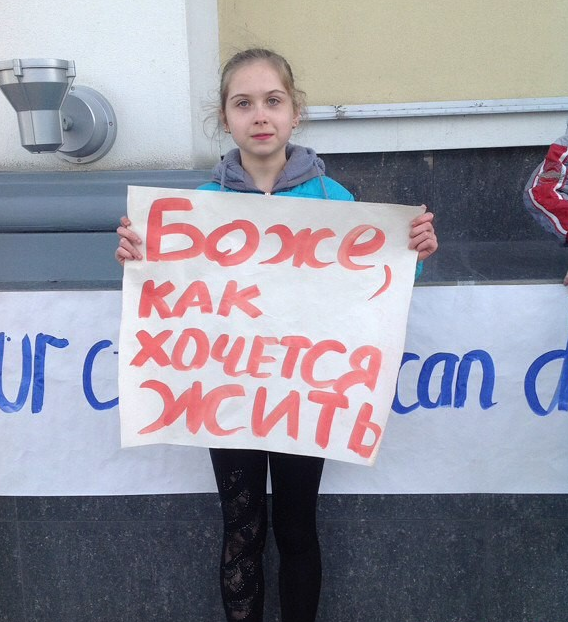 Боже,
как
хочется
жить
ur c can d